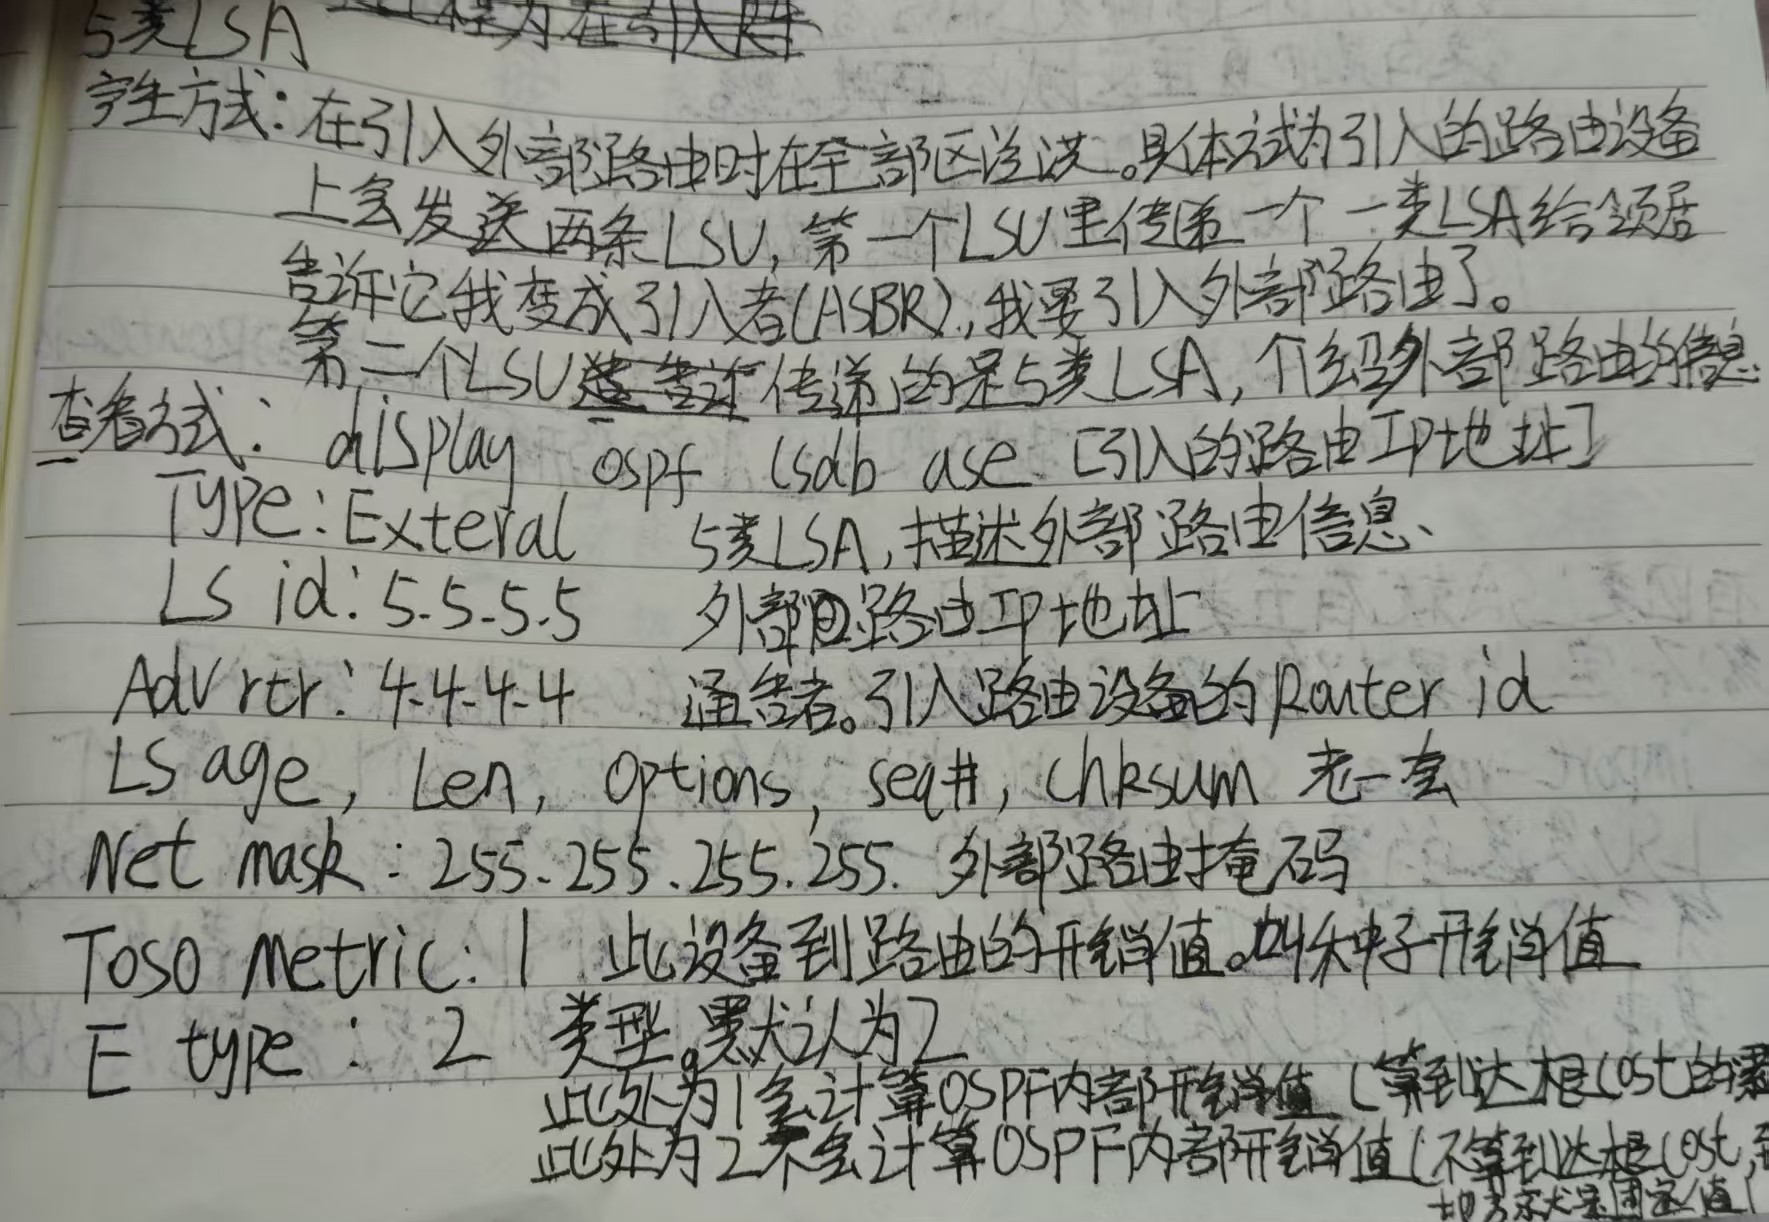 5类LSA
产生方式：在引入外部路由时在全部区泛洪。具体方式为引入的路由设备
上会发送两条LSU，第一个LSU里传递一个一类LSA给邻居
告诉它我变成引入者(ASBR)，我要引入外部路由了。
第二个LSU传递的是5类LSA，介绍外部路由的信息.
查看方式：display ospf lsdb ase [引入的路由IP地址]
Type：Exteral 5类LSA，描述外部路由信息、
LS id：5.5.5.5 外部路由IP地址
Adv rtr：4.4.4.4 通告者。引入路由设备的Router id
LS age, Len, Options, seq#, chksum 老一套
Net mask：255.255.255.255. 外部路由掩码
Toso Metric：1 此设备到路由的开销值。叫种子开销值
E type：2 类型。默认为2
此处为1会计算OSPF内部开销值（算到达根cost的累
此处为2不会计算OSPF内部开销值（不算到达根cost,